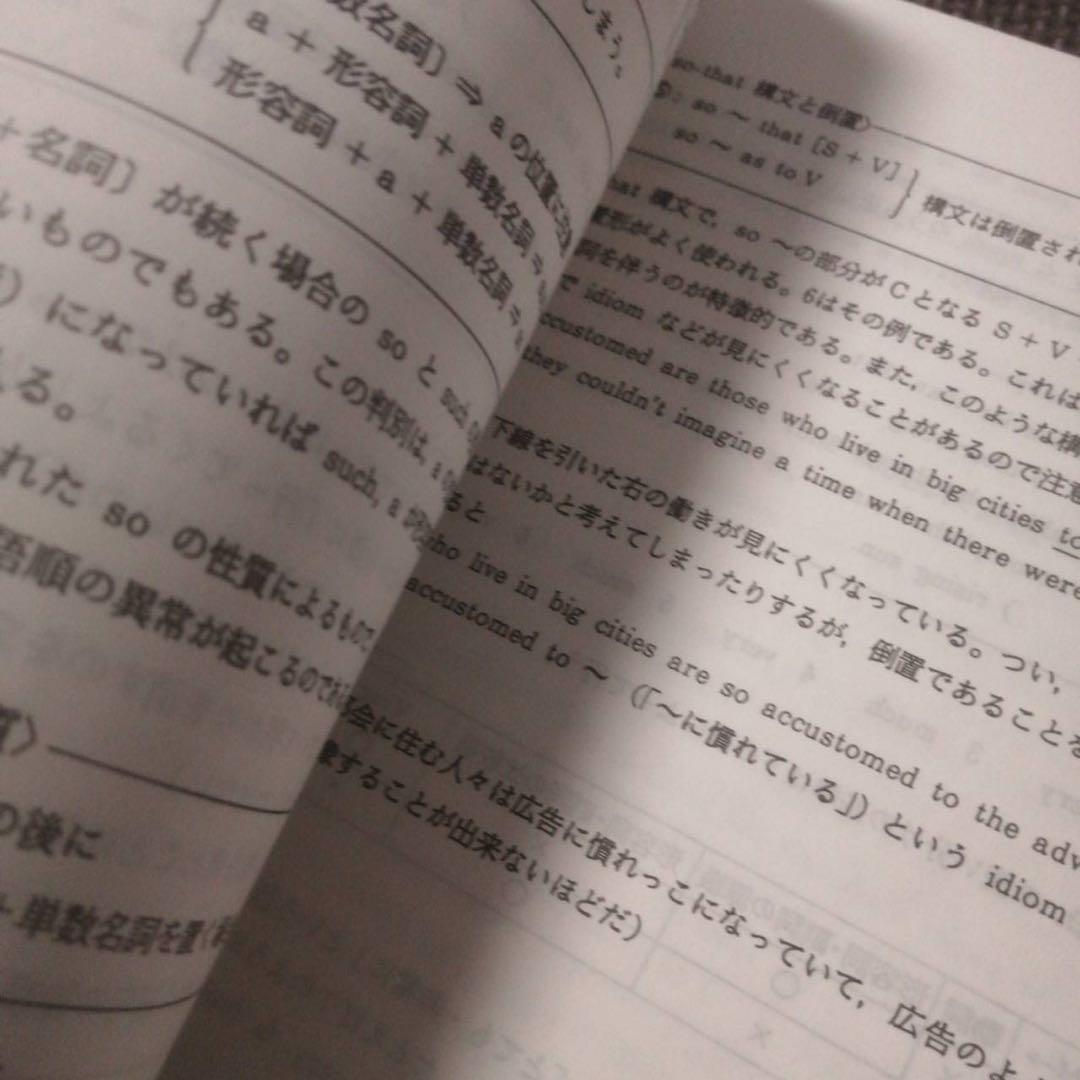 しまう。
数名詞〕⇒ aの位置に
a + 形容詞 + 単数名詞
形容詞 + a + 単数名詞
+ 名詞〕が続く場合の so と such
いものでもある。この判別は、a
）になっていれば such, a が
える。
れた so の性質によるもので、
語順の異常が起こるので
質〉
の後に
+ 単数名詞を置く
so-that 構文と倒置〉
so ～ that [S + V]
so ～ as to V
構文は倒置され
hat 構文で，so ～の部分がCとなる S + V
変形がよく使われる。6はその例である。これは
詞を伴うのが特徴的である。また，このような構
で idiom などが見にくくなることがあるので注意
accustomed are those who live in big cities to
they couldn't imagine a time when there were
下線を引いた右の働きが見にくくなっている。つい，
はないかと考えてしまったりするが，倒置であることを
ると
who live in big cities are so accustomed to the adv
accustomed to ～（「～に慣れている」）という idiom
都会に住む人々は広告に慣れっこになっていて，広告のよ
像することが出来ないほどだ）